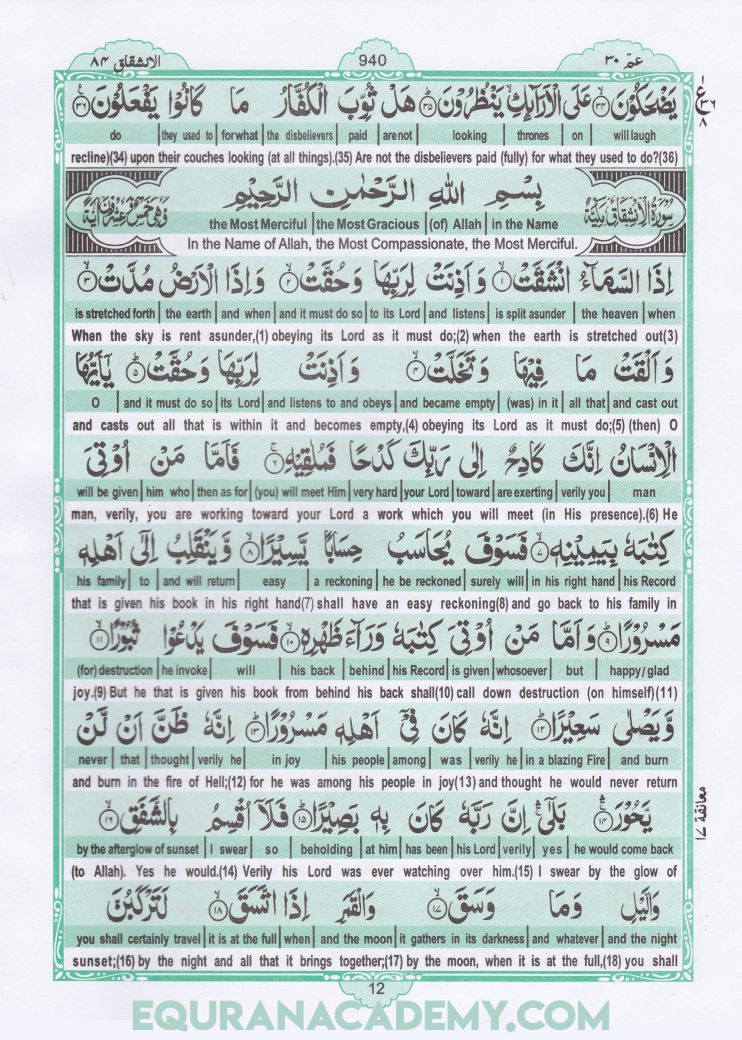 الانشقاق ٨٤
940
عمّ ٣٠
يَضْحَكُوْنَ ﴿٣٤﴾ عَلَى الْاَرَآئِكِ يَنْظُرُوْنَ ﴿٣٥﴾ هَلْ ثُوِّبَ الْكُفَّارُ مَا كَانُوْا يَفْعَلُوْنَ ﴿٣٦﴾
do | they used to | for what | the disbelievers | paid | are not | looking | thrones | on | will laugh
recline)(34) upon their couches looking (at all things).(35) Are not the disbelievers paid (fully) for what they used to do?(36)
سُوْرَةُ الْاِنْشِقَاقِ مَكِّيَّةٌ
بِسْمِ اللّٰهِ الرَّحْمٰنِ الرَّحِيْمِ
وَهِيَ خَمْسٌ وَّعِشْرُوْنَ اٰيَةً
the Most Merciful | the Most Gracious | (of) Allah | in the Name
In the Name of Allah, the Most Compassionate, the Most Merciful.
اِذَا السَّمَآءُ انْشَقَّتْ ﴿١﴾ وَاَذِنَتْ لِرَبِّهَا وَحُقَّتْ ﴿٢﴾ وَاِذَا الْاَرْضُ مُدَّتْ ﴿٣﴾
is stretched forth | the earth | and when | and it must do so | to its Lord | and listens | is split asunder | the heaven | when
When the sky is rent asunder,(1) obeying its Lord as it must do;(2) when the earth is stretched out(3)
وَاَلْقَتْ مَا فِيْهَا وَتَخَلَّتْ ﴿٤﴾ وَاَذِنَتْ لِرَبِّهَا وَحُقَّتْ ﴿٥﴾ يٰٓاَيُّهَا
O | and it must do so | its Lord | and listens to and obeys | and became empty | (was) in it | all that | and cast out
and casts out all that is within it and becomes empty,(4) obeying its Lord as it must do;(5) (then) O
الْاِنْسَانُ اِنَّكَ كَادِحٌ اِلٰى رَبِّكَ كَدْحًا فَمُلٰقِيْهِ ﴿٦﴾ فَاَمَّا مَنْ اُوْتِيَ
will be given | him who | then as for | (you) will meet Him | very hard | your Lord | toward | are exerting | verily you | man
man, verily, you are working toward your Lord a work which you will meet (in His presence).(6) He
كِتٰبَهٗ بِيَمِيْنِهٖ ﴿٧﴾ فَسَوْفَ يُحَاسَبُ حِسَابًا يَّسِيْرًا ﴿٨﴾ وَّيَنْقَلِبُ اِلٰٓى اَهْلِهٖ
his family | to | and will return | easy | a reckoning | he be reckoned | surely will | in his right hand | his Record
that is given his book in his right hand(7) shall have an easy reckoning(8) and go back to his family in
مَسْرُوْرًا ﴿٩﴾ وَاَمَّا مَنْ اُوْتِيَ كِتٰبَهٗ وَرَآءَ ظَهْرِهٖ ﴿١٠﴾ فَسَوْفَ يَدْعُوْا ثُبُوْرًا ﴿١١﴾
(for) destruction | he invoke | will | his back | behind | his Record | is given | whosoever | but | happy/glad
joy.(9) But he that is given his book from behind his back shall(10) call down destruction (on himself)(11)
وَّيَصْلٰى سَعِيْرًا ﴿١٢﴾ اِنَّهٗ كَانَ فِيْٓ اَهْلِهٖ مَسْرُوْرًا ﴿١٣﴾ اِنَّهٗ ظَنَّ اَنْ لَّنْ
never | that | thought | verily he | in joy | his people | among | was | verily he | in a blazing Fire | and burn
and burn in the fire of Hell;(12) for he was among his people in joy(13) and thought he would never return
يَّحُوْرَ ﴿١٤﴾ بَلٰٓى اِنَّ رَبَّهٗ كَانَ بِهٖ بَصِيْرًا ﴿١٥﴾ فَلَآ اُقْسِمُ بِالشَّفَقِ ﴿١٦﴾
by the afterglow of sunset | I swear | so | beholding | at him | has been | his Lord | verily | yes | he would come back
(to Allah). Yes he would.(14) Verily his Lord was ever watching over him.(15) I swear by the glow of
وَالَّيْلِ وَمَا وَسَقَ ﴿١٧﴾ وَالْقَمَرِ اِذَا اتَّسَقَ ﴿١٨﴾ لَتَرْكَبُنَّ
you shall certainly travel | it is at the full | when | and the moon | it gathers in its darkness | and whatever | and the night
sunset;(16) by the night and all that it brings together;(17) by the moon, when it is at the full,(18) you shall
ع ١ ٣٦ ٨
معانقة ١٧
12
EQURANACADEMY.COM